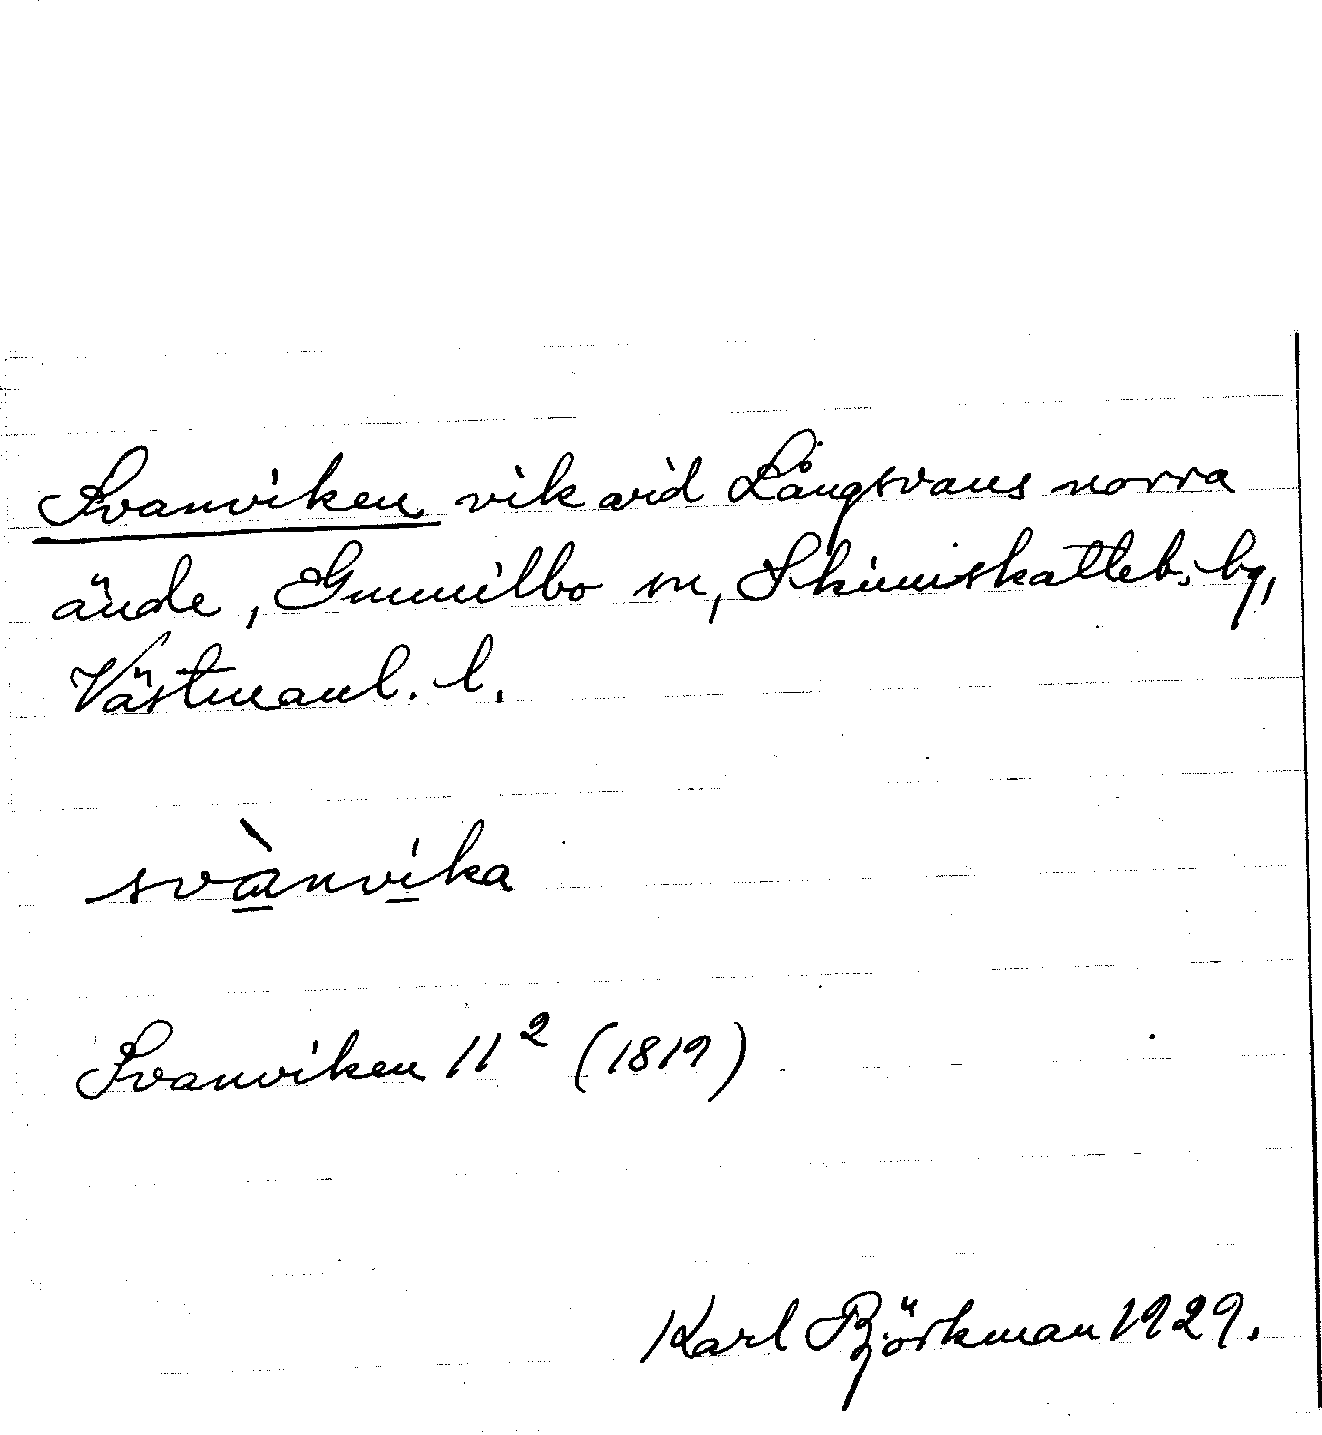 Svanviken vik vid Långsvans norra
ände, Gunnilbo sn, Skinnskatteb. bg,
Västmanl. l.
svànvíka
Svanviken 11² (1819)
Karl Björkman 1929.